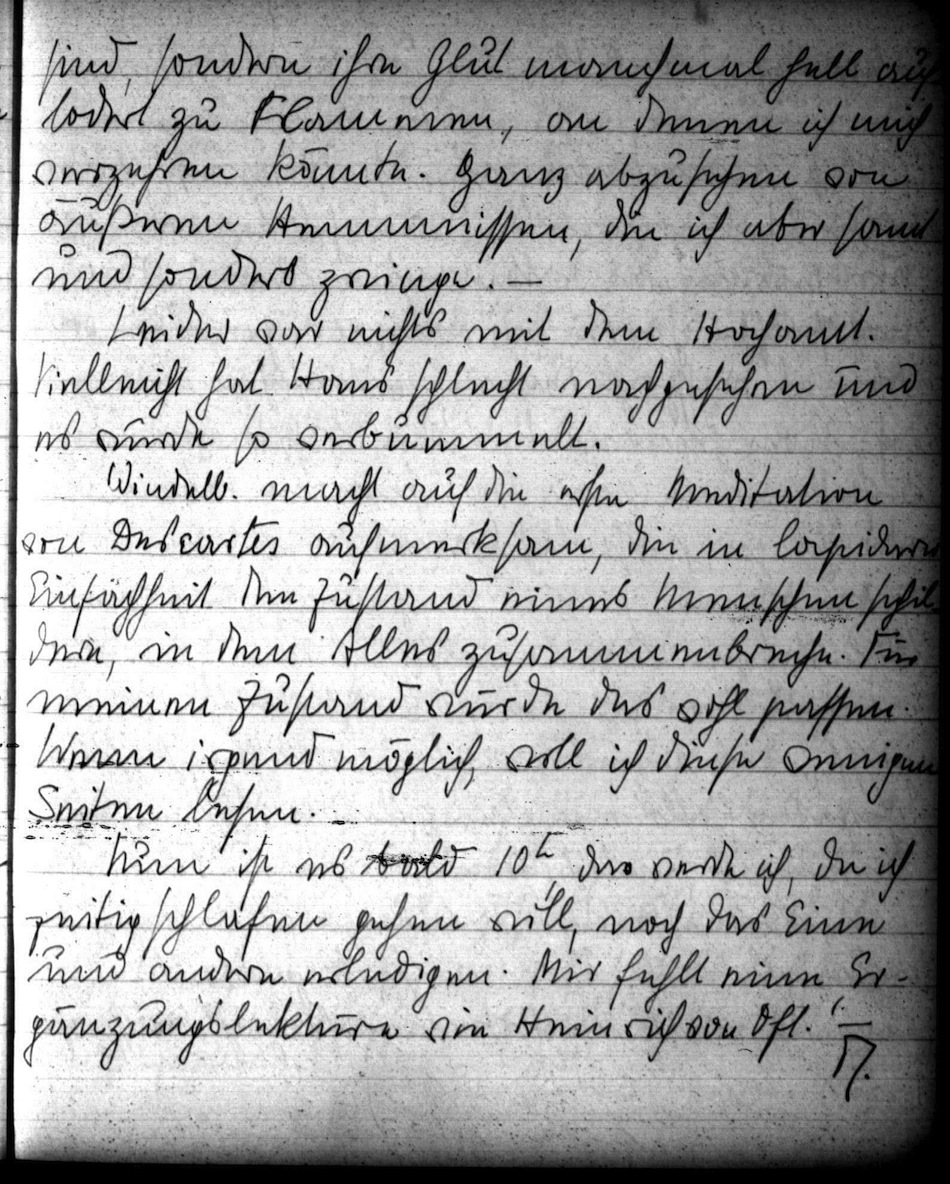 sind, sondern ihre Glut manchmal hell auf
lodert zu Flammen, an denen ich mich
verzehren könnte. Ganz abzusehen von
äußeren Hemmnissen, die ich aber samt
und sonders zwinge. —
Leider war nichts mit dem Hochamt.
Vielleicht hat Hans schlecht nachgesehen und
es wurde so verbummelt.
Windelb. macht auf die erste Meditation
von Descartes aufmerksam, die in lapidarer
Einfachheit den Zustand eines Menschen schil
dere, in dem Alles zusammenbreche. Für
meinen Zustand würde das wohl passen.
Wenn irgend möglich, will ich diese wenigen
Seiten lesen.
Nun ist es bald 10h, da werde ich, da ich
zeitig schlafen gehen will, noch das Eine
und andere erledigen. Mir fehlt eine Er-
gänzungslektüre wie Heinrich von Oft.! —